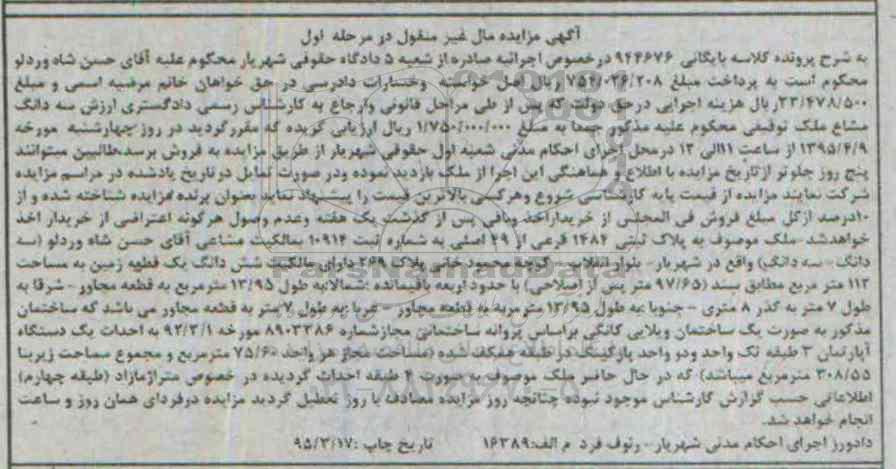 آگهی مزایده مال غیر منقول در مرحله اول
به شرح پرونده کلاسه بایگانی ۹۴۴۶۷۶ درخصوص اجرائیه صادره از شعبه ۵ دادگاه حقوقی شهریار محکوم علیه آقای حسن شاه وردلو
محکوم است به پرداخت مبلغ ۷۵۴/۰۲۶/۲۰۸ ریال اصل خواسته وخسارات دادرسی در حق خواهان خانم مرضیه اسمی و مبلغ
۲۳/۴۷۸/۵۰۰ ریال هزینه اجرایی درحق دولت که پس از طی مراحل قانونی وارجاع به کارشناس رسمی دادگستری ارزش سه دانگ
مشاع ملک توقیفی محکوم علیه مذکور جمعا به مبلغ ۱/۷۵۰/۰۰۰/۰۰۰ ریال ارزیابی گریده که مقررگردید در روز چهارشنبه مورخه
۱۳۹۵/۴/۹ از ساعت ۱۱الی ۱۲ درمحل اجرای احکام مدنی شعبه اول حقوقی شهریار از طریق مزایده به فروش برسد،طالبین میتوانند
پنج روز جلوتر ازتاریخ مزایده با اطلاع و هماهنگی این اجرا از ملک بازدید نموده ودر صورت تمایل درتاریخ یادشده در مراسم مزایده
شرکت نمایند مزایده از قیمت پایه کارشناسی شروع وهرکسی بالاترین قیمت را پیشنهاد نماید بعنوان برنده مزایده شناخته شده و از
۱۰درصد ازکل مبلغ فروش فی المجلس از خریداراخذ ومافی پس از گذشت یک هفته وعدم وصول هرگونه اعتراضی از خریدار اخذ
خواهدشد-ملک موصوف به پلاک ثبتی ۱۴۸۴ فرعی از ۴۹ اصلی به شماره ثبت ۱۰۹۱۴ بمالکیت مشاعی آقای حسن شاه وردلو (سه
دانگ - سه دانگ) واقع در شهریار- بلوار انقلاب- کوچه محمود خانی پلاک ۲۶۹ دارای مالکیت شش دانگ یک قطعه زمین به مساحت
۱۱۲ متر مربع مطابق سند (۹۷/۶۵ متر پس از اصلاحی) با حدود اربعه باقیمانده :شمالا:به طول ۱۳/۹۵ مترمربع به قطعه مجاور- شرقا به
طول ۷ متر به گذر ۸ متری - جنوبا :به طول ۱۳/۹۵ مترمربع به قطعه مجاور - غربا :به طول ۷ متر به قطعه مجاور می باشد که ساختمان
مذکور به صورت یک ساختمان ویلایی کانگی براساس پروانه ساختمانی مجازشماره ۸۹۰۳۳۸۶ مورخه ۹۲/۳/۱ به احداث یک دستگاه
آپارتمان ۳ طبقه تک واحد ودو واحد پارکینگ در طبقه همکف شده (مساحت مجاز هر واحد ۷۵/۶۰ مترمربع و مجموع مساحت زیربنا
۳۰۸/۵۵ مترمربع میباشد) که در حال حاضر ملک موصوف به صورت ۴ طبقه احداث گردیده در خصوص متراژمازاد (طبقه چهارم)
اطلاعاتی حسب گزارش کارشناس موجود نبوده چنانچه روز مزایده مصادف با روز تعطیل گردید مزایده درفردای همان روز و ساعت
انجام خواهد شد.
دادورز اجرای احکام مدنی شهریار- رئوف فرد م الف:۱۶۳۸۹ تاریخ چاپ :۹۵/۳/۱۷
ParsNamadData